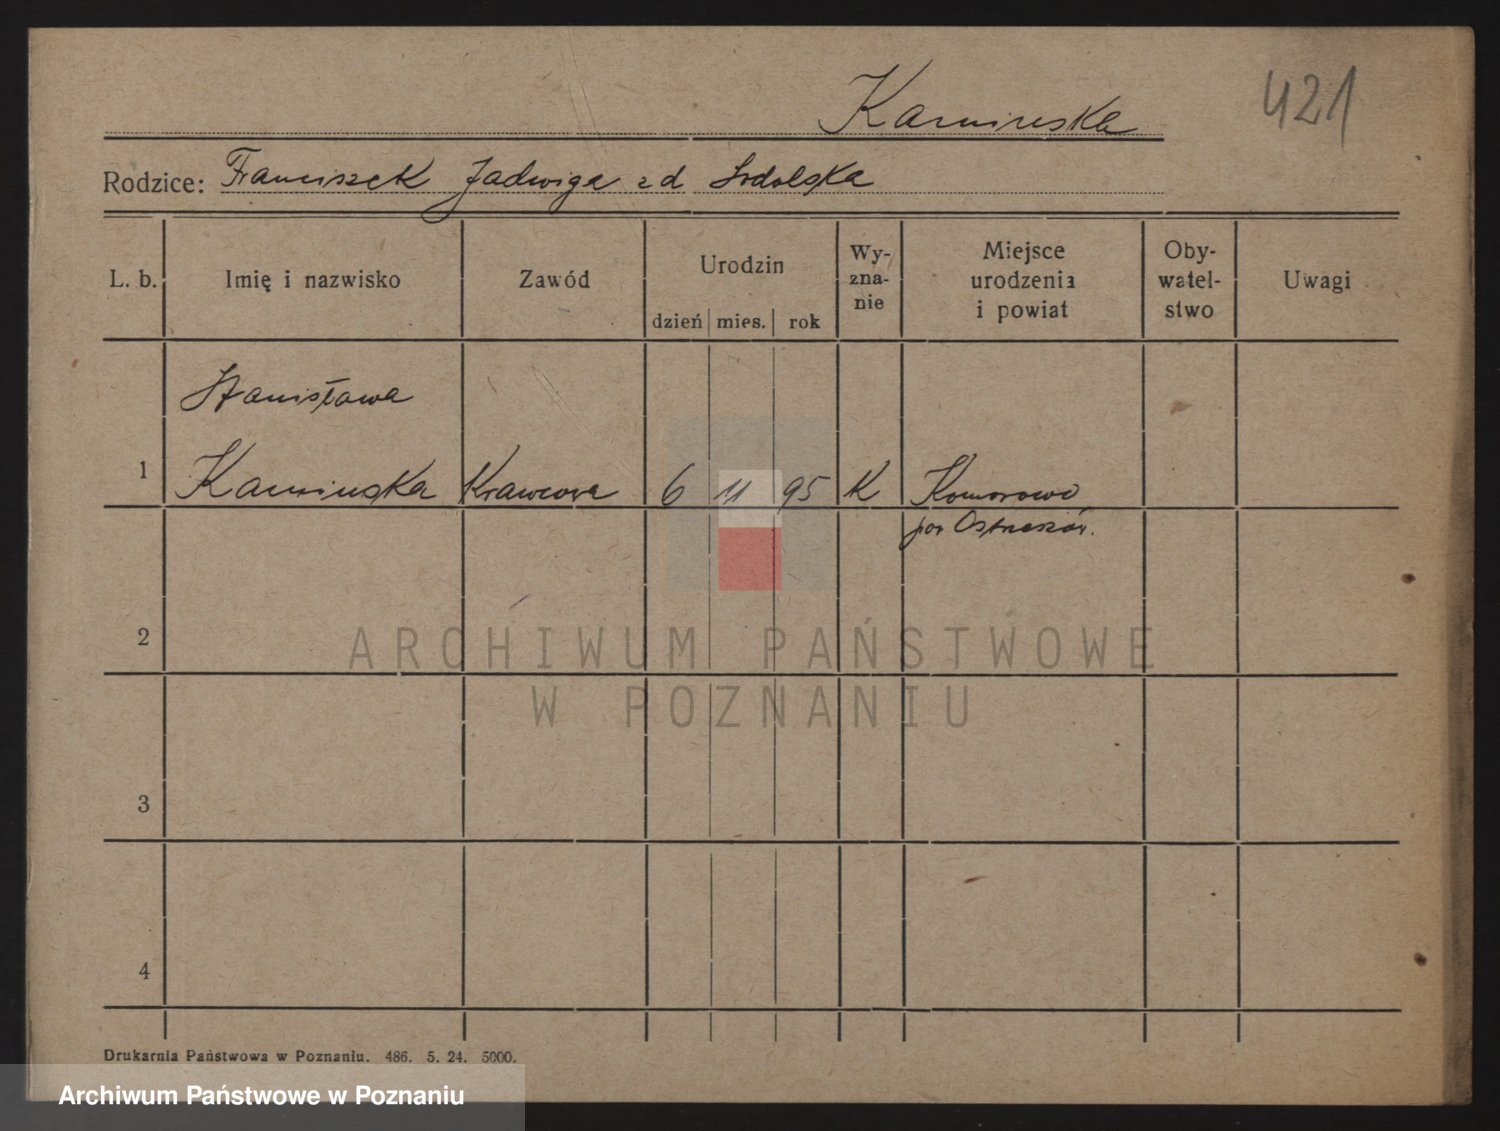 Kaminska
421
Rodzice: Franciszek Jadwiga zd
L. b.
Imię i nazwisko
Zawód
Urodzin
dzień mies. rok
Wy-
zna-
nie
Miejsce
urodzenia
i powiat
Oby-
watel-
stwo
Uwagi
Stanisława
1 Kaminska Krawcowa 6 11 95 K Komorowo
pow Ostrzeszów.
2
ARCHIWUM PAŃSTWOWE
W POZNANIU
3
4
Drukarnia Państwowa w Poznaniu. 486. 5. 24. 5000.
Archiwum Państwowe w Poznaniu